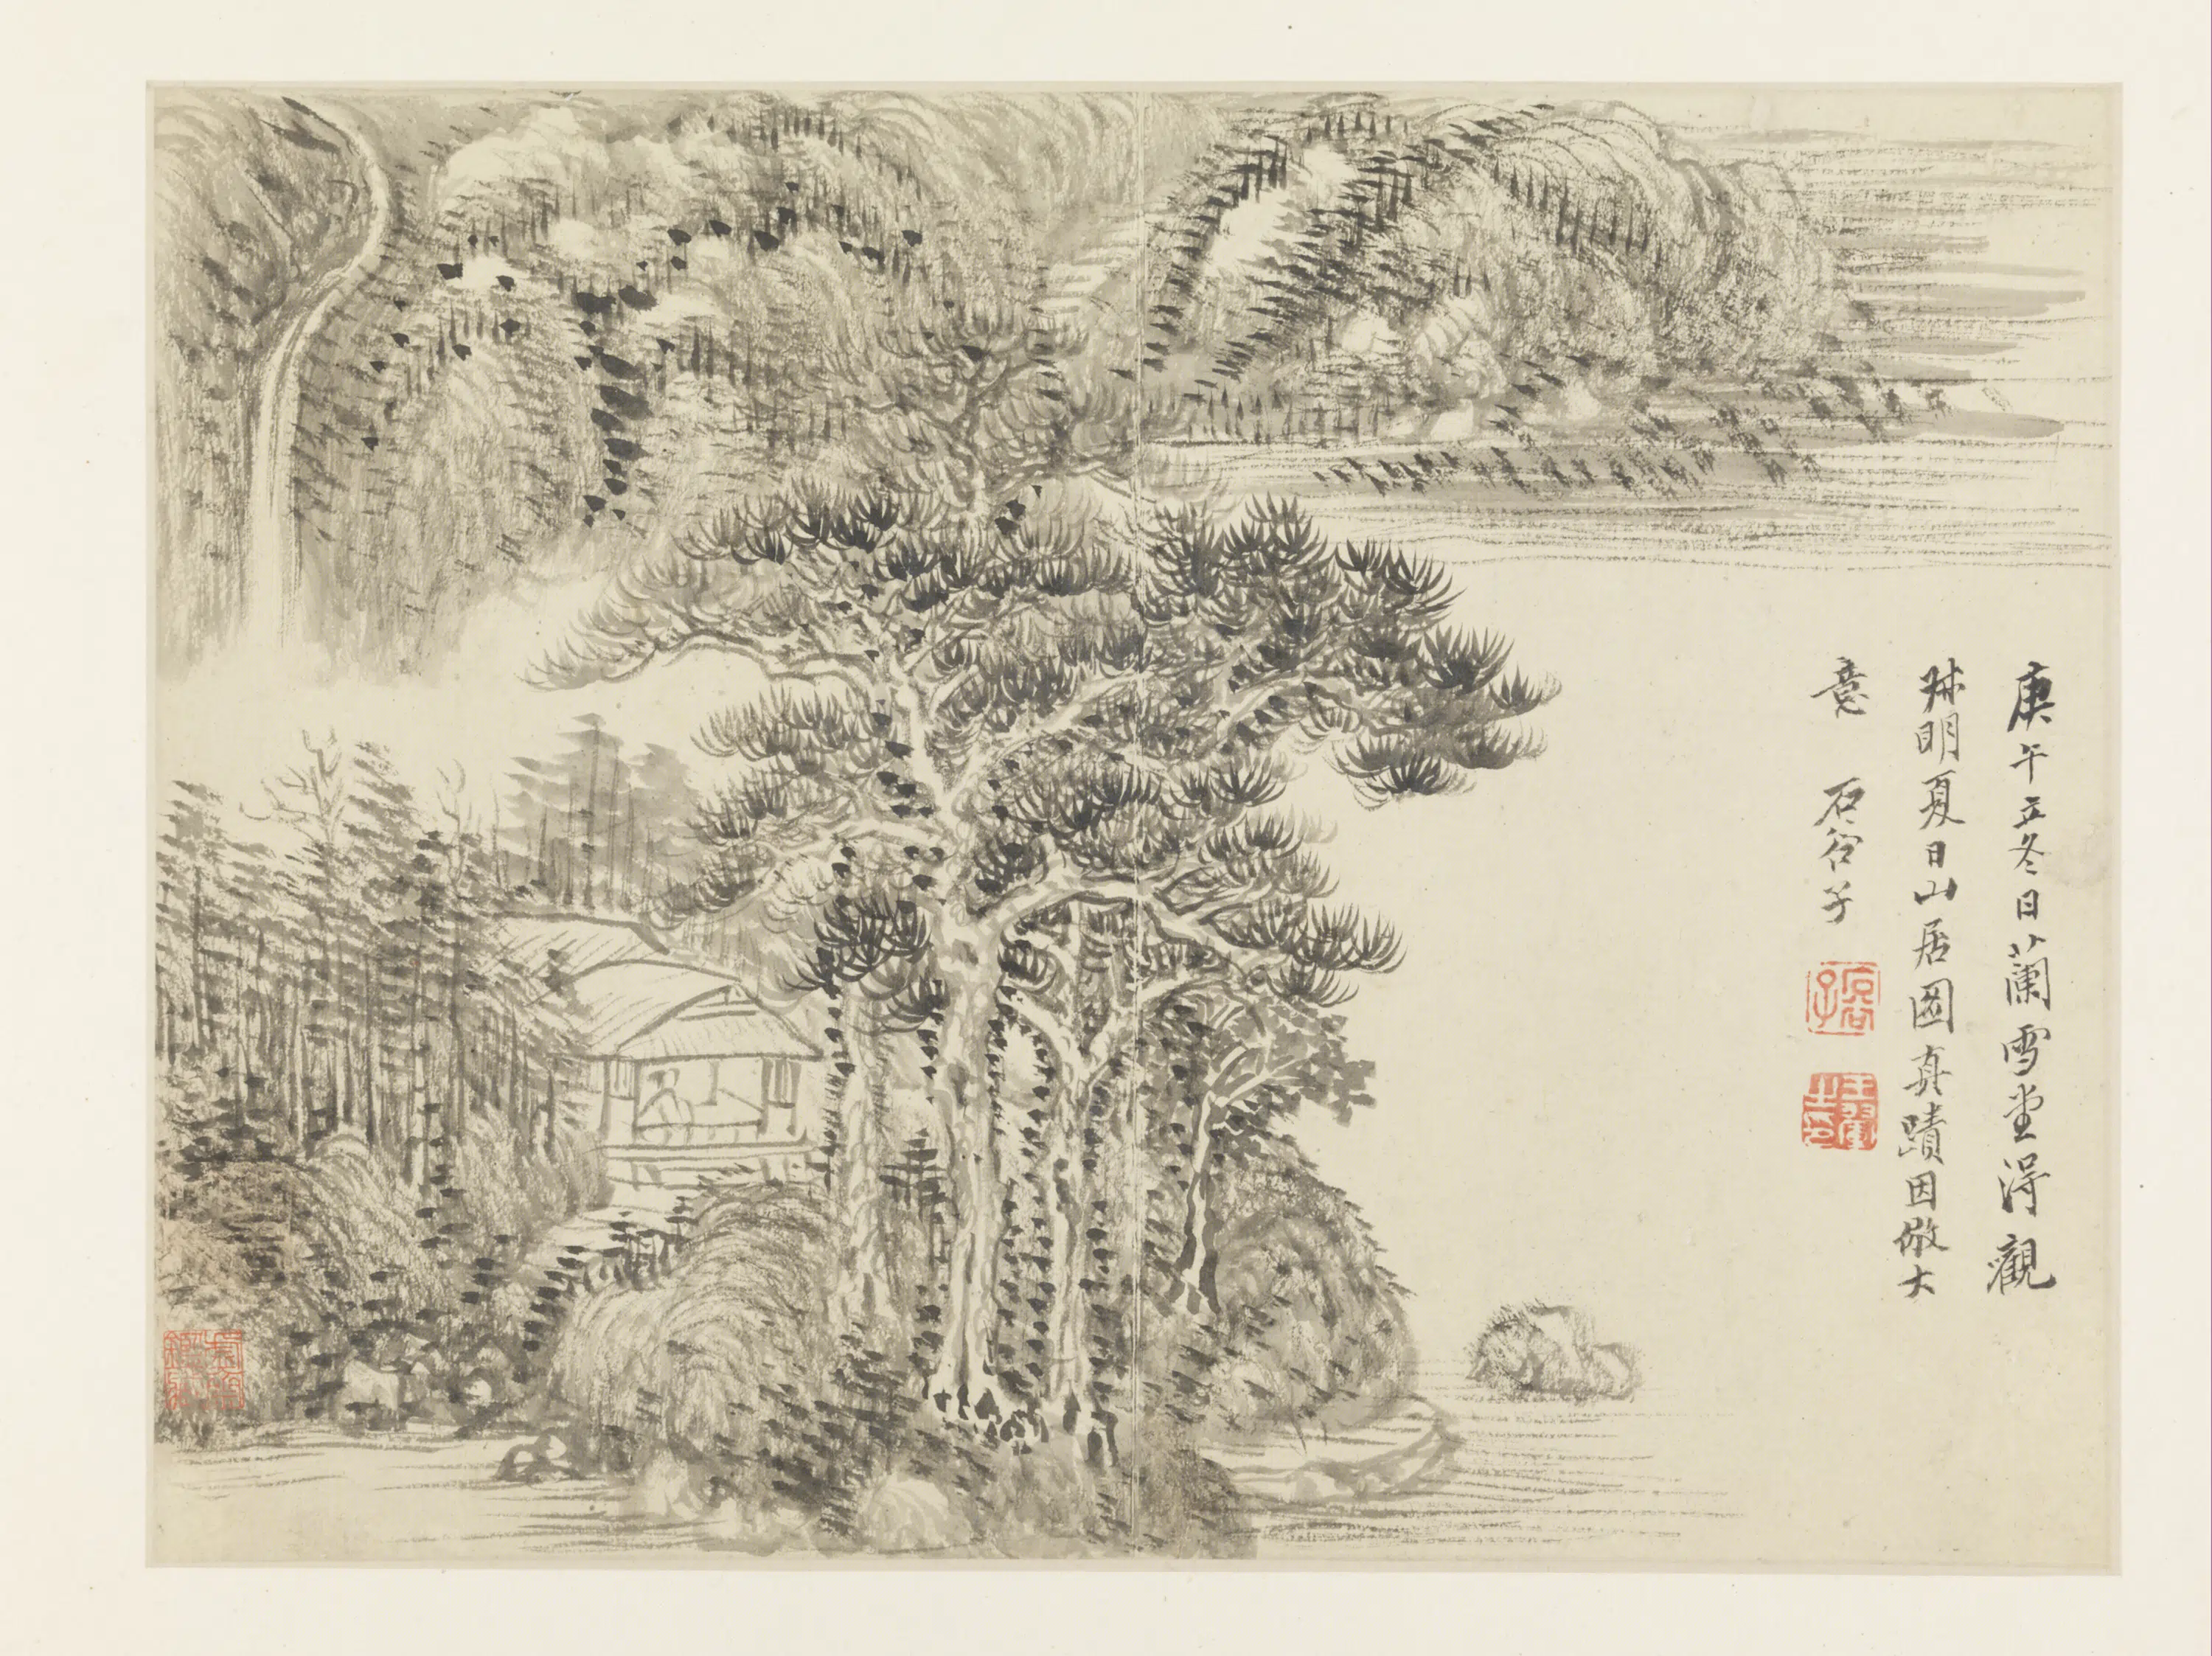 庚午立冬日蘭雪堂得觀
娕明夏日山居圖真蹟因倣大
意 石谷子
王翬之印